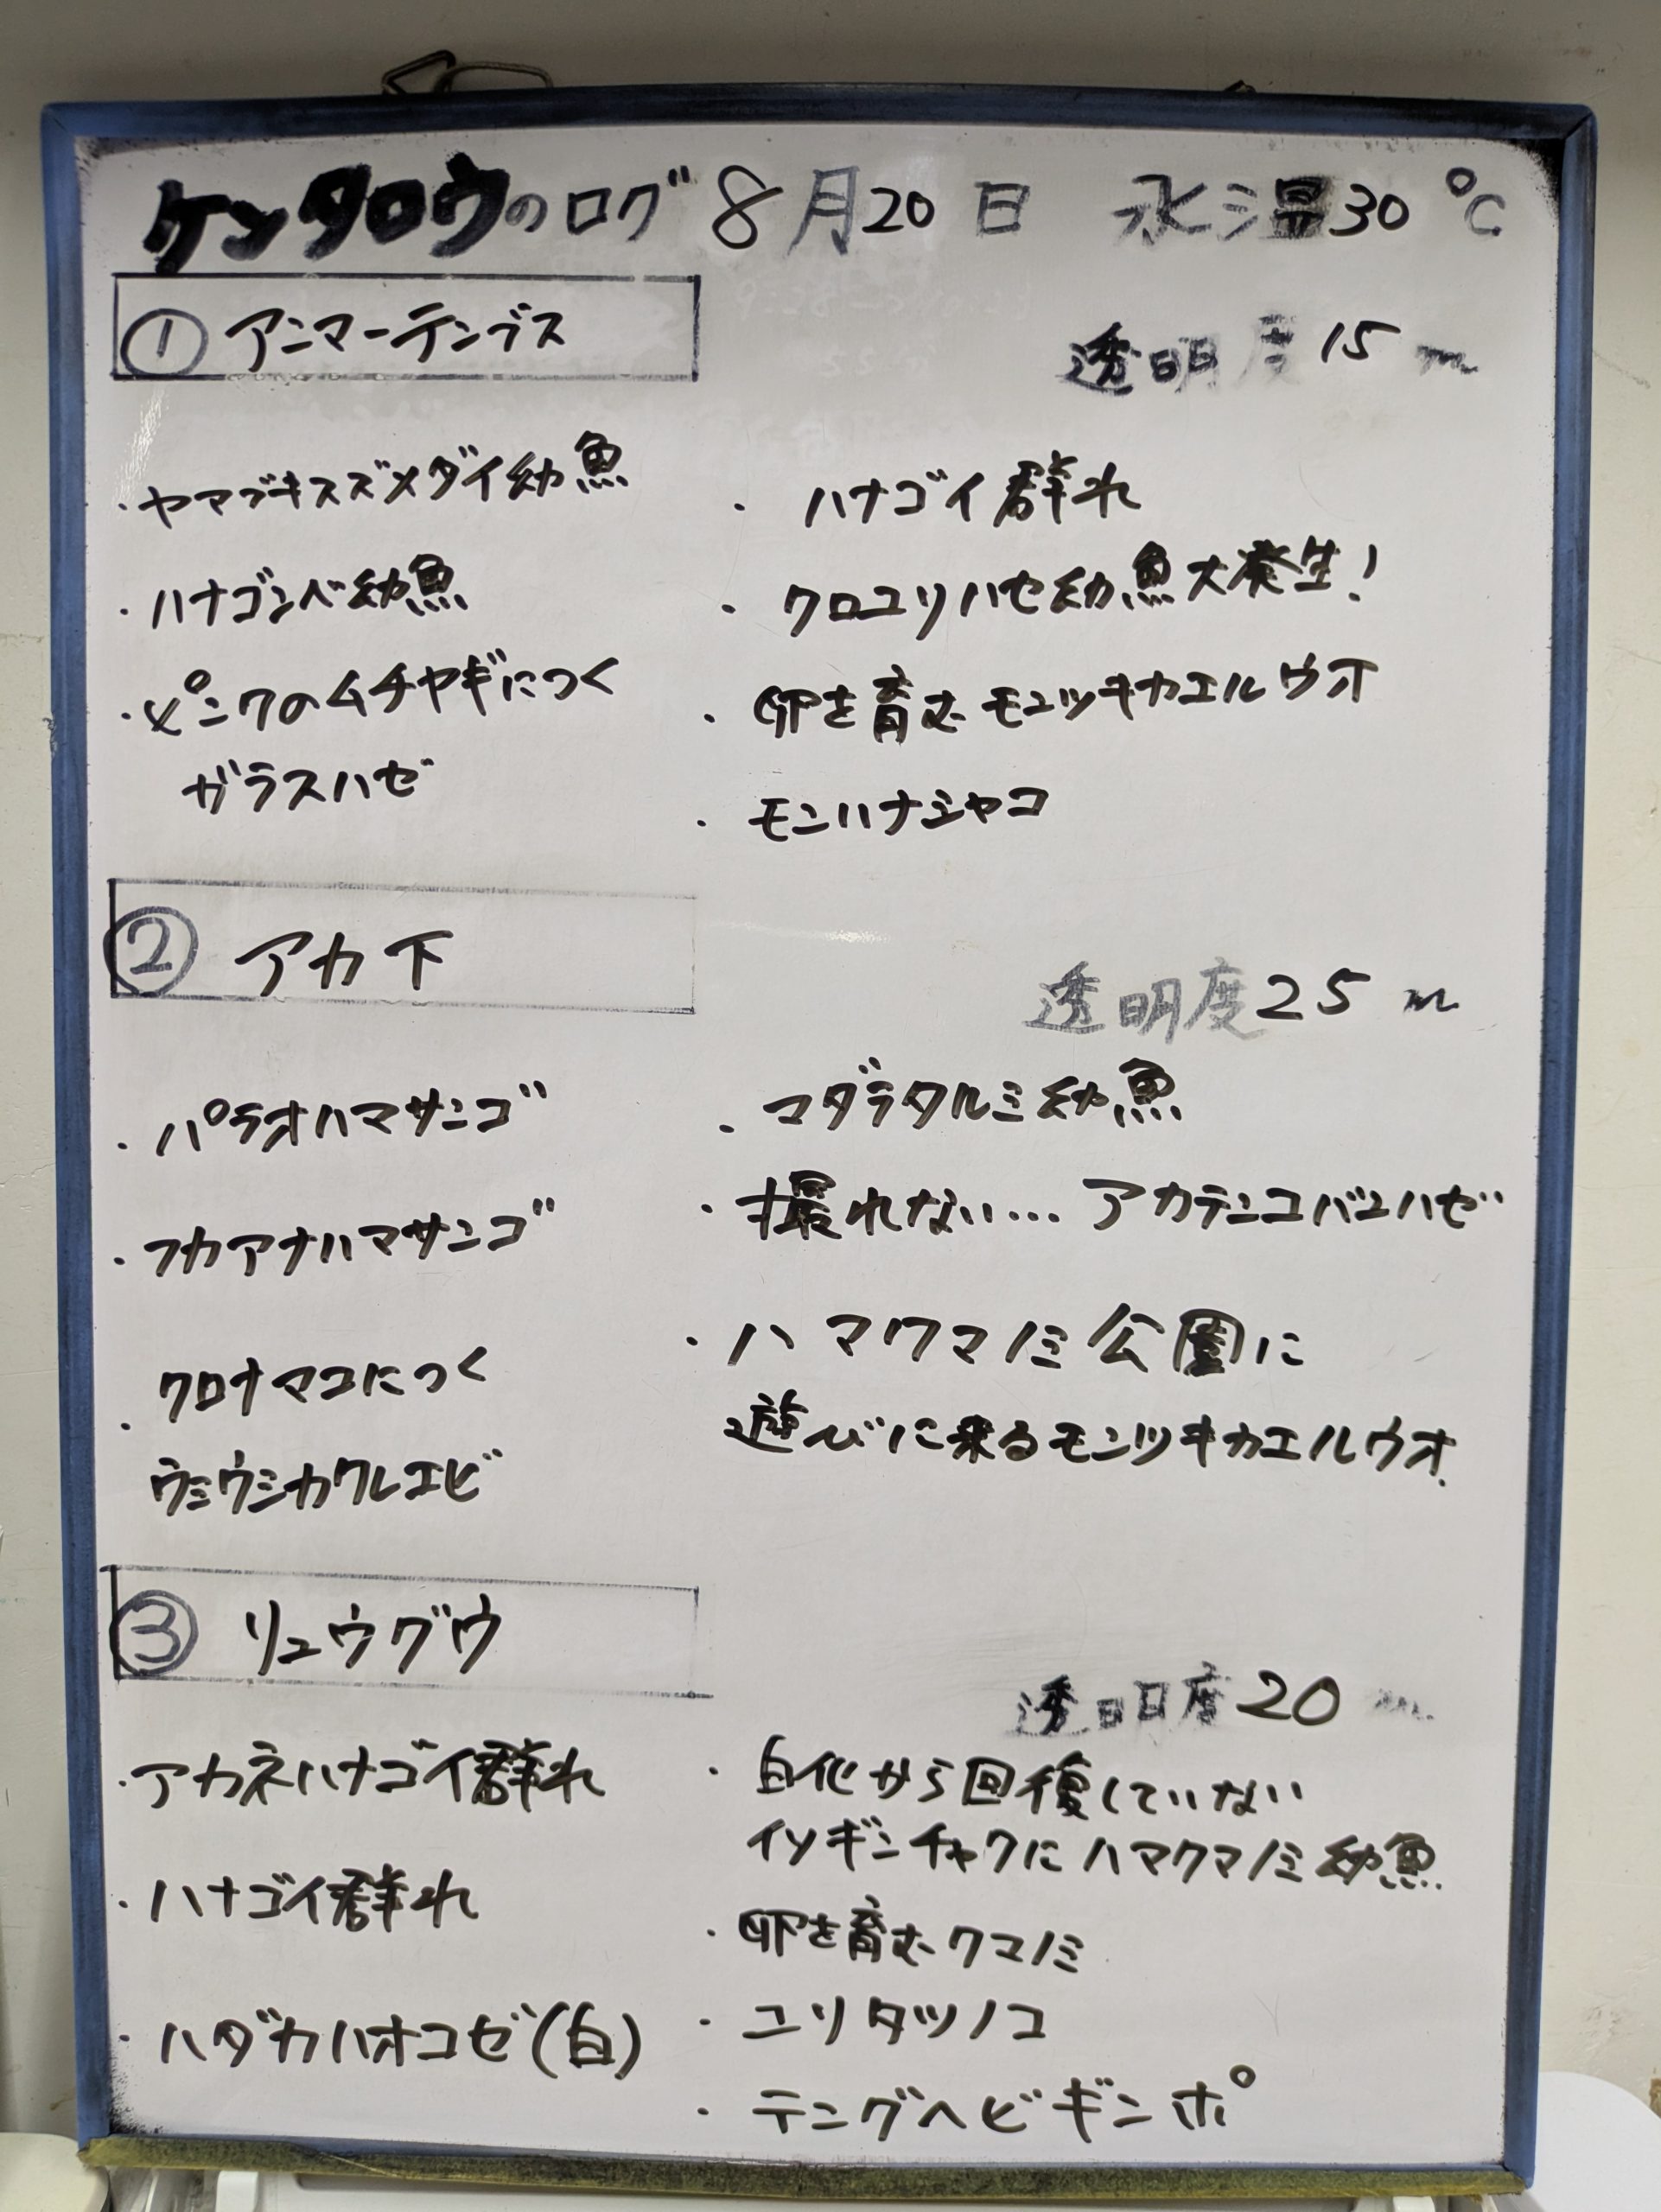 ケンタロウのログ 8月20日 水温30℃
① アンマーテンブス
透明度15m
・ヤマブキスズメダイ幼魚
・ハナゴンベ幼魚
・ピンクのムチヤギにつく
ガラスハゼ
・ハナゴイ群れ
・クロユリハゼ幼魚大発生!
・卵を育むモンツキカエルウオ
・モンハナシャコ
② アカ下
透明度25m
・パラオハマサンゴ
・フカアナハマサンゴ
・クロナマコにつく
ウミウシカクレエビ
・マダラタルミ幼魚
・撮れない…アカテンコバンハゼ
・ハマクマノミ公園に
遊びに来るモンツキカエルウオ
③ リュウグウ
透明度20m
・アカネハナゴイ群れ
・ハナゴイ群れ
・ハダカハオコゼ(白)
・白化から回復していない
イソギンチャクにハマクマノミ幼魚
・卵を育むクマノミ
・ユリタツノコ
・テングヘビギンポ